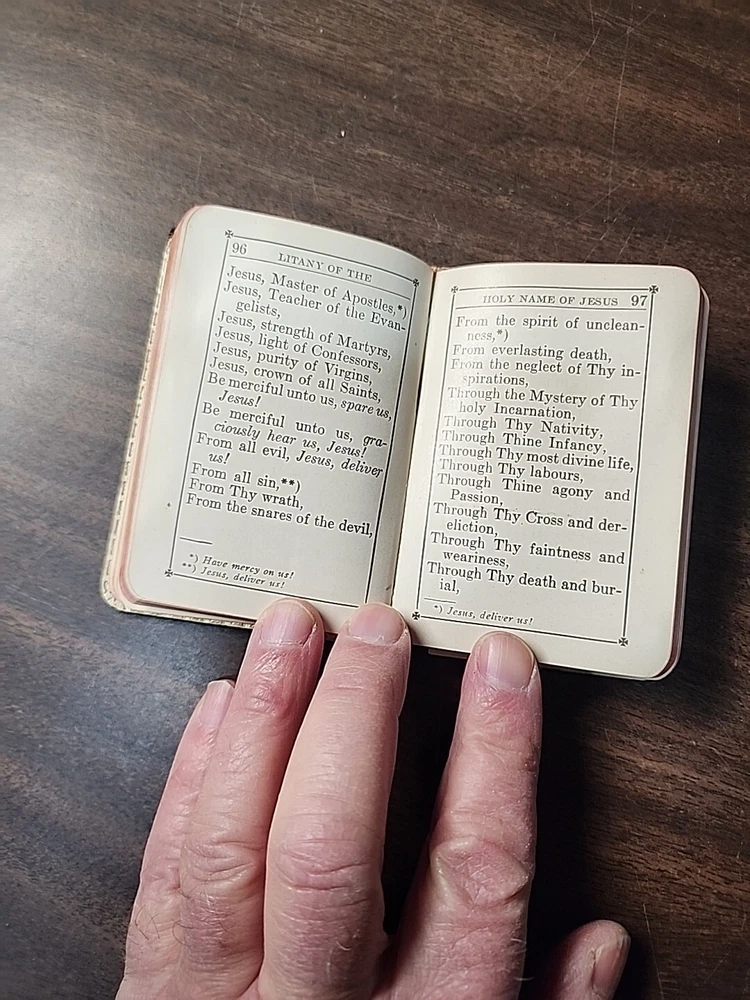 96 LITANY OF THE
Jesus, Master of Apostles,*)
Jesus, Teacher of the Evan-
gelists,
Jesus, strength of Martyrs,
Jesus, light of Confessors,
Jesus, purity of Virgins,
Jesus, crown of all Saints,
Be merciful unto us, spare us,
Jesus!
Be merciful unto us, gra-
ciously hear us, Jesus!
From all evil, Jesus, deliver
us!
From all sin,**)
From Thy wrath,
From the snares of the devil,
*) Have mercy on us!
**) Jesus, deliver us!
HOLY NAME OF JESUS 97
From the spirit of unclean-
ness,*)
From everlasting death,
From the neglect of Thy in-
spirations,
Through the Mystery of Thy
holy Incarnation,
Through Thy Nativity,
Through Thine Infancy,
Through Thy most divine life,
Through Thy labours,
Through Thine agony and
Passion,
Through Thy Cross and der-
eliction,
Through Thy faintness and
weariness,
Through Thy death and bur-
ial,
*) Jesus, deliver us!